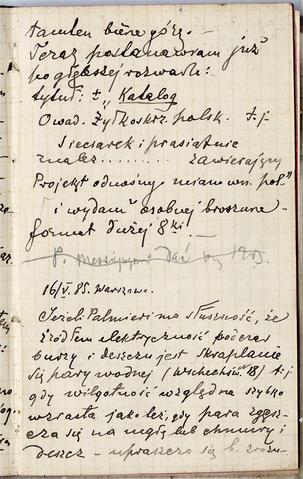 tamten bierze górę. -
Teraz postanawiam już
po głębszej rozwadze:
tytuł: ± „Katalog
Owad. Żyłkoskrz. polsk. t.j.
Siecsarek i prasiatnic
znalez......... zawierający
Projekt odnośny mianown. pol."
i wydam osobną broszurę -
format dużej 8ki.
16/V. 85. Warszawa.
Jeżeli Palmieri ma słuszność, że
źródłem elektryczności podczas
burzy i deszczu jest skraplanie
się pary wodnej (Wschechświat 18) t.j.
gdy wilgotność względna szybko
wzrasta jako też, gdy para zgęsz-
cza się na mgłę lub chmury i
deszcz - upraszcza się b. zrozu-